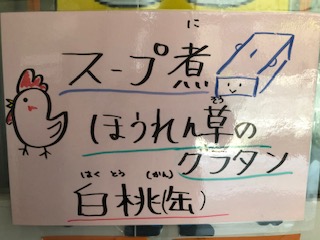 に
スープ煮
そう
ほうれん草の
クラタン
はくとう(かん)
白桃(缶)